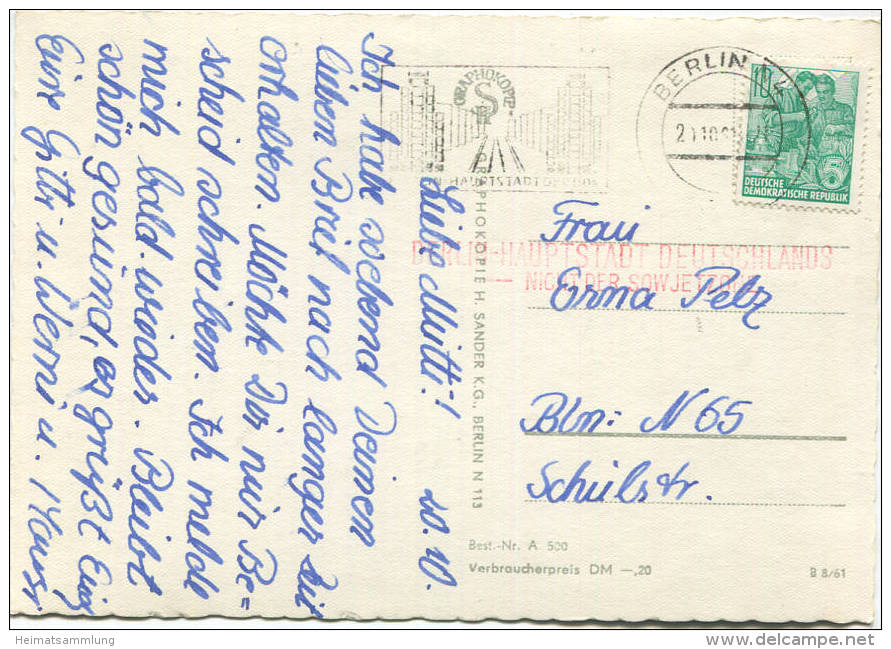 Liebe Mutti! 20.10.
Ich habe soebend Deinen
lieben Brief nach langer Zeit
erhalten. Möchte Dir nur Be=
scheid schreiben. Ich melde
mich bald wieder. Bleibt
schön gesund, es grüßt Euch
Eure Gitti u. Werni u.
GRAPHOKOPIE H. SANDER K.G., BERLIN N 113
GRAPHOKOPIE
BERLIN
10
DEUTSCHE
DEMOKRATISCHE REPUBLIK
BERLIN-HAUPTSTADT DEUTSCHLANDS
— NICHT DER SOWJETZONE
Frau
Erna Pelz
Bln: N 65
Schulstr.
Best.-Nr. A 500
Verbraucherpreis DM —,20
B 8/61
Heimatsammlung
www.delcampe.net